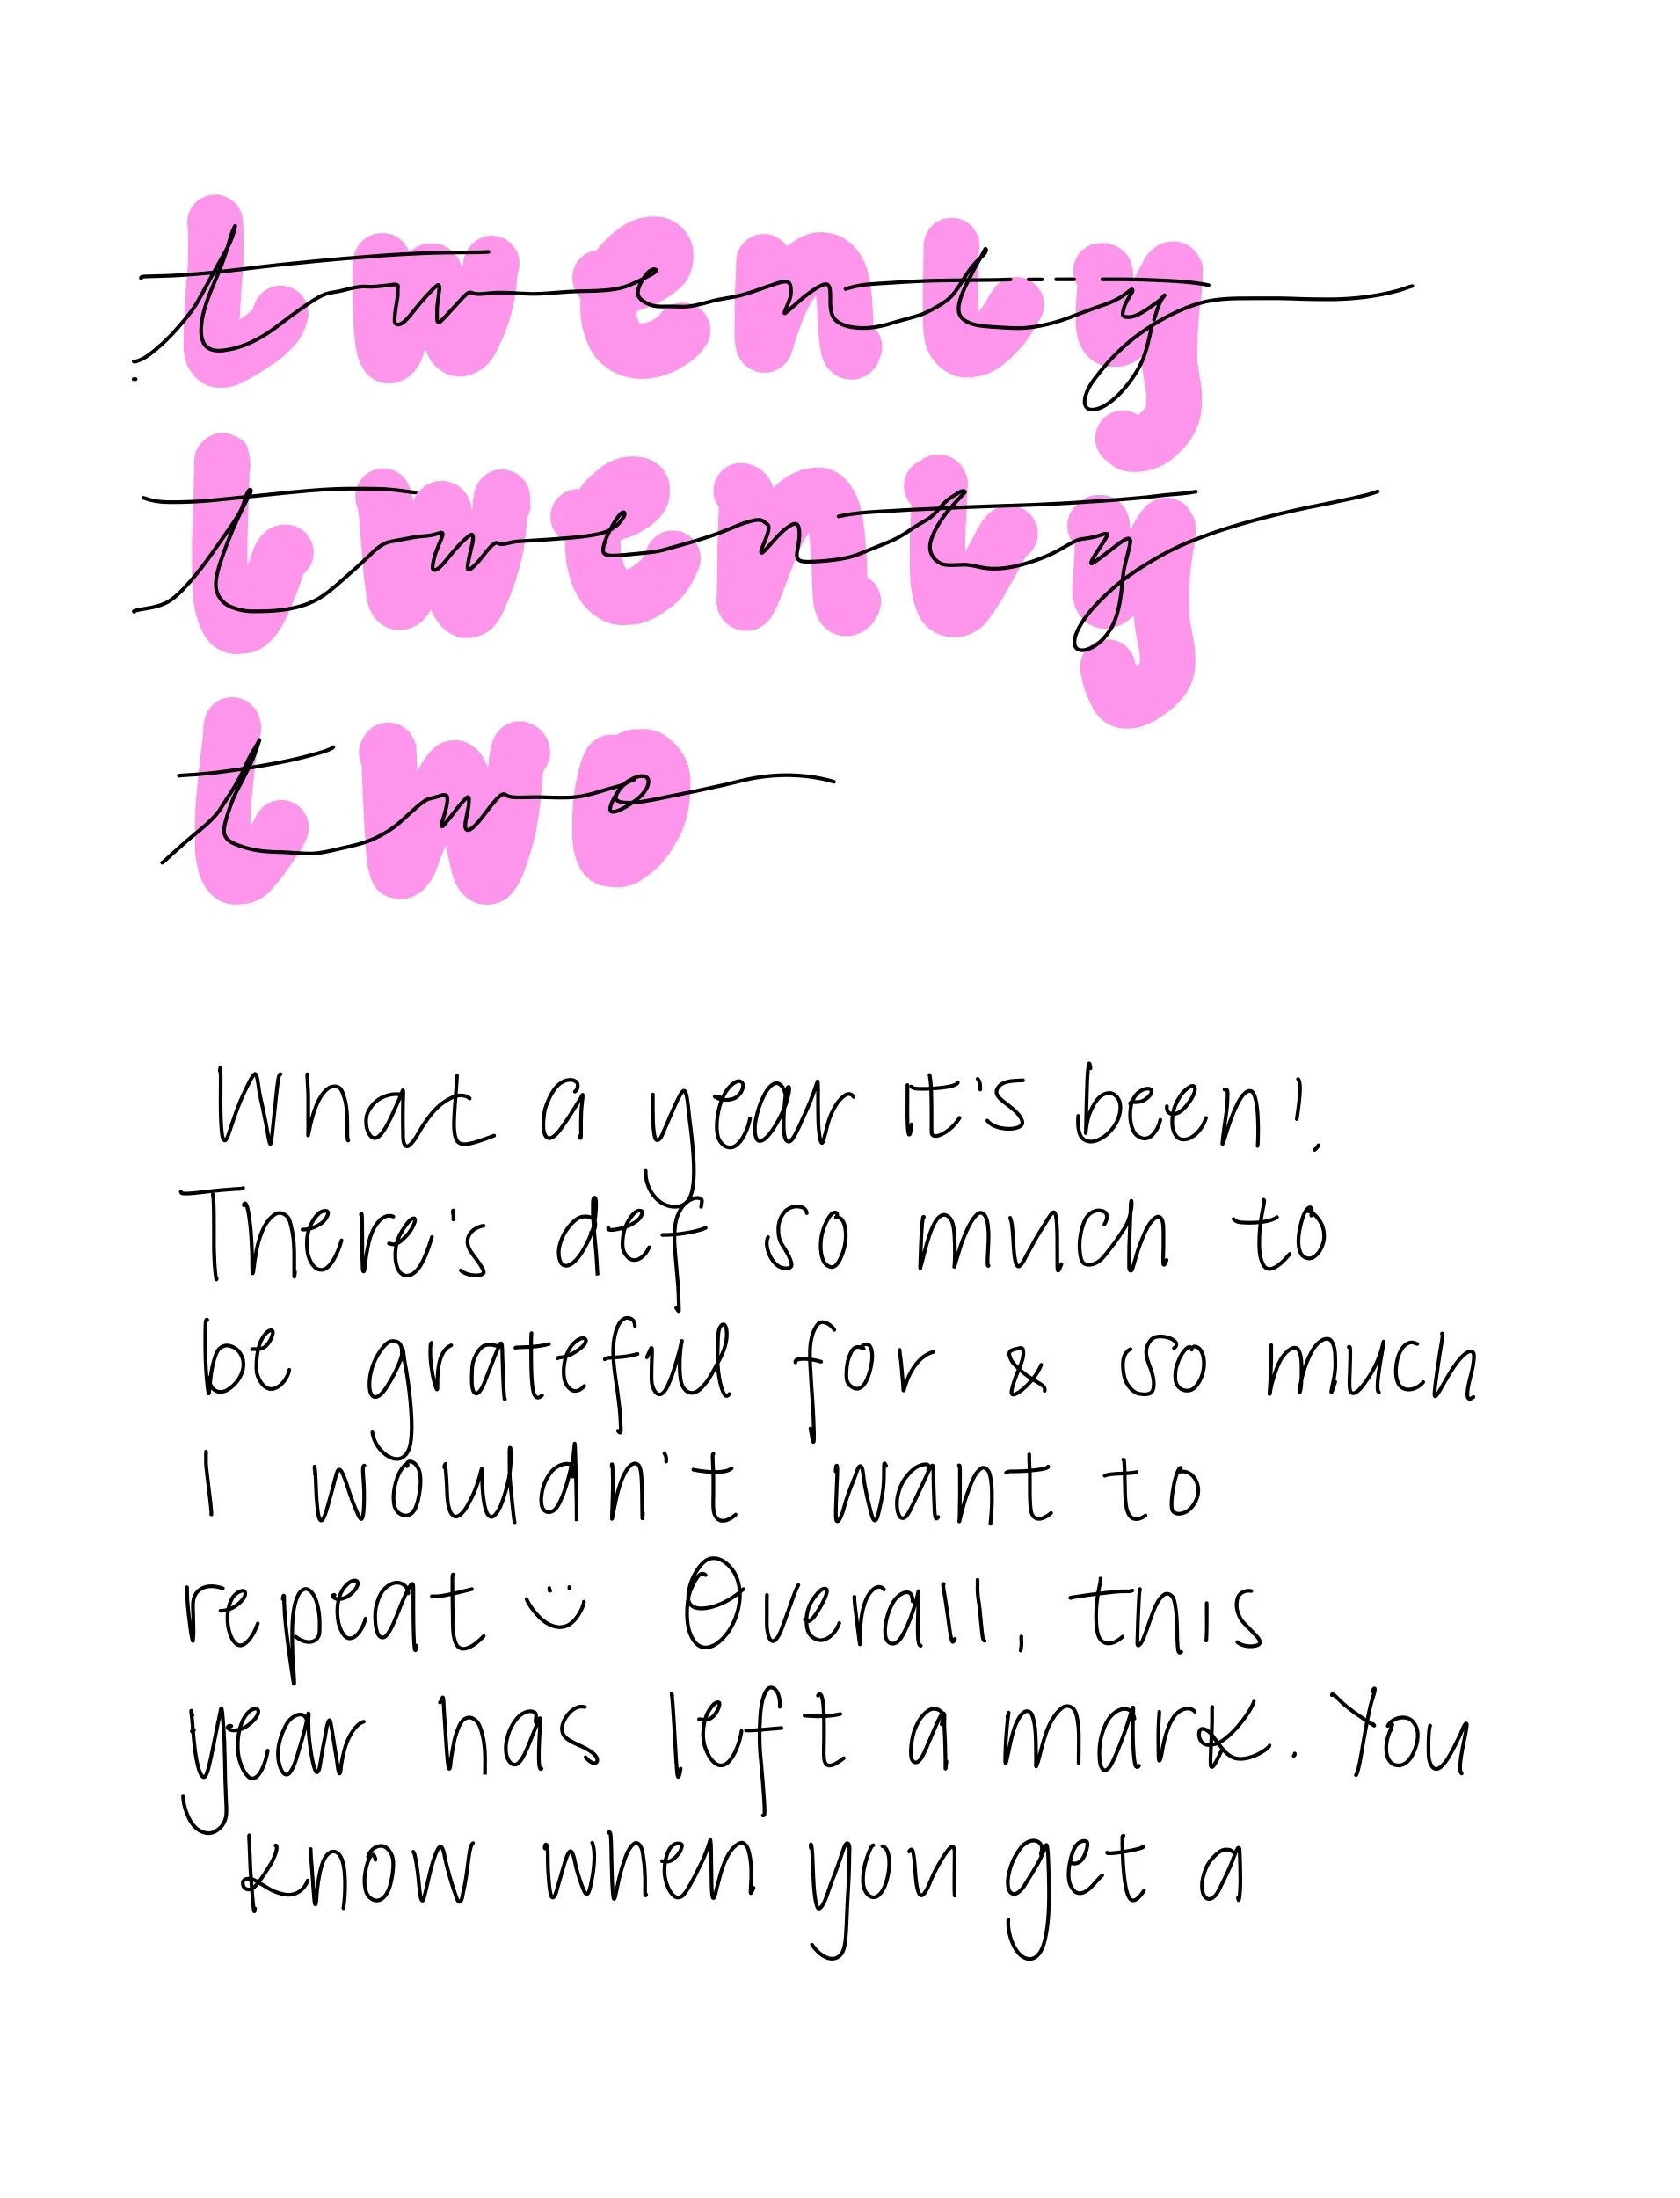 twenty
twenty
two
What a year it's been!
There's def so much to
be grateful for & so much
I wouldn't want to
repeat :) Overall, this
year has left a mark. You
know when you get a